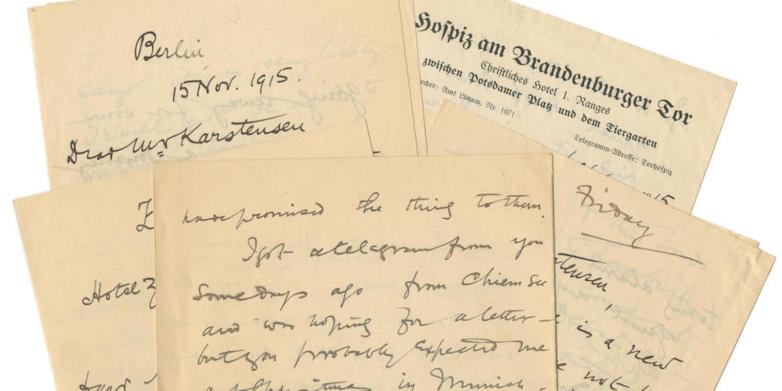 Berlin
15 Nov. 1915.
Dear Mr Karstensen
Hospiz am Brandenburger Tor
Christliches Hotel I. Ranges
zwischen Potsdamer Platz und dem Tiergarten
Amt Lützow, Nr. 1071
Telegramm-Adresse: Torhospiz
15
Friday
tensen,
is a new
not
Hotel
have promised the thing to them.
I got a telegram from you
some days ago from Chiemsee
and was hoping for a letter -
but you probably expected me
in Munich